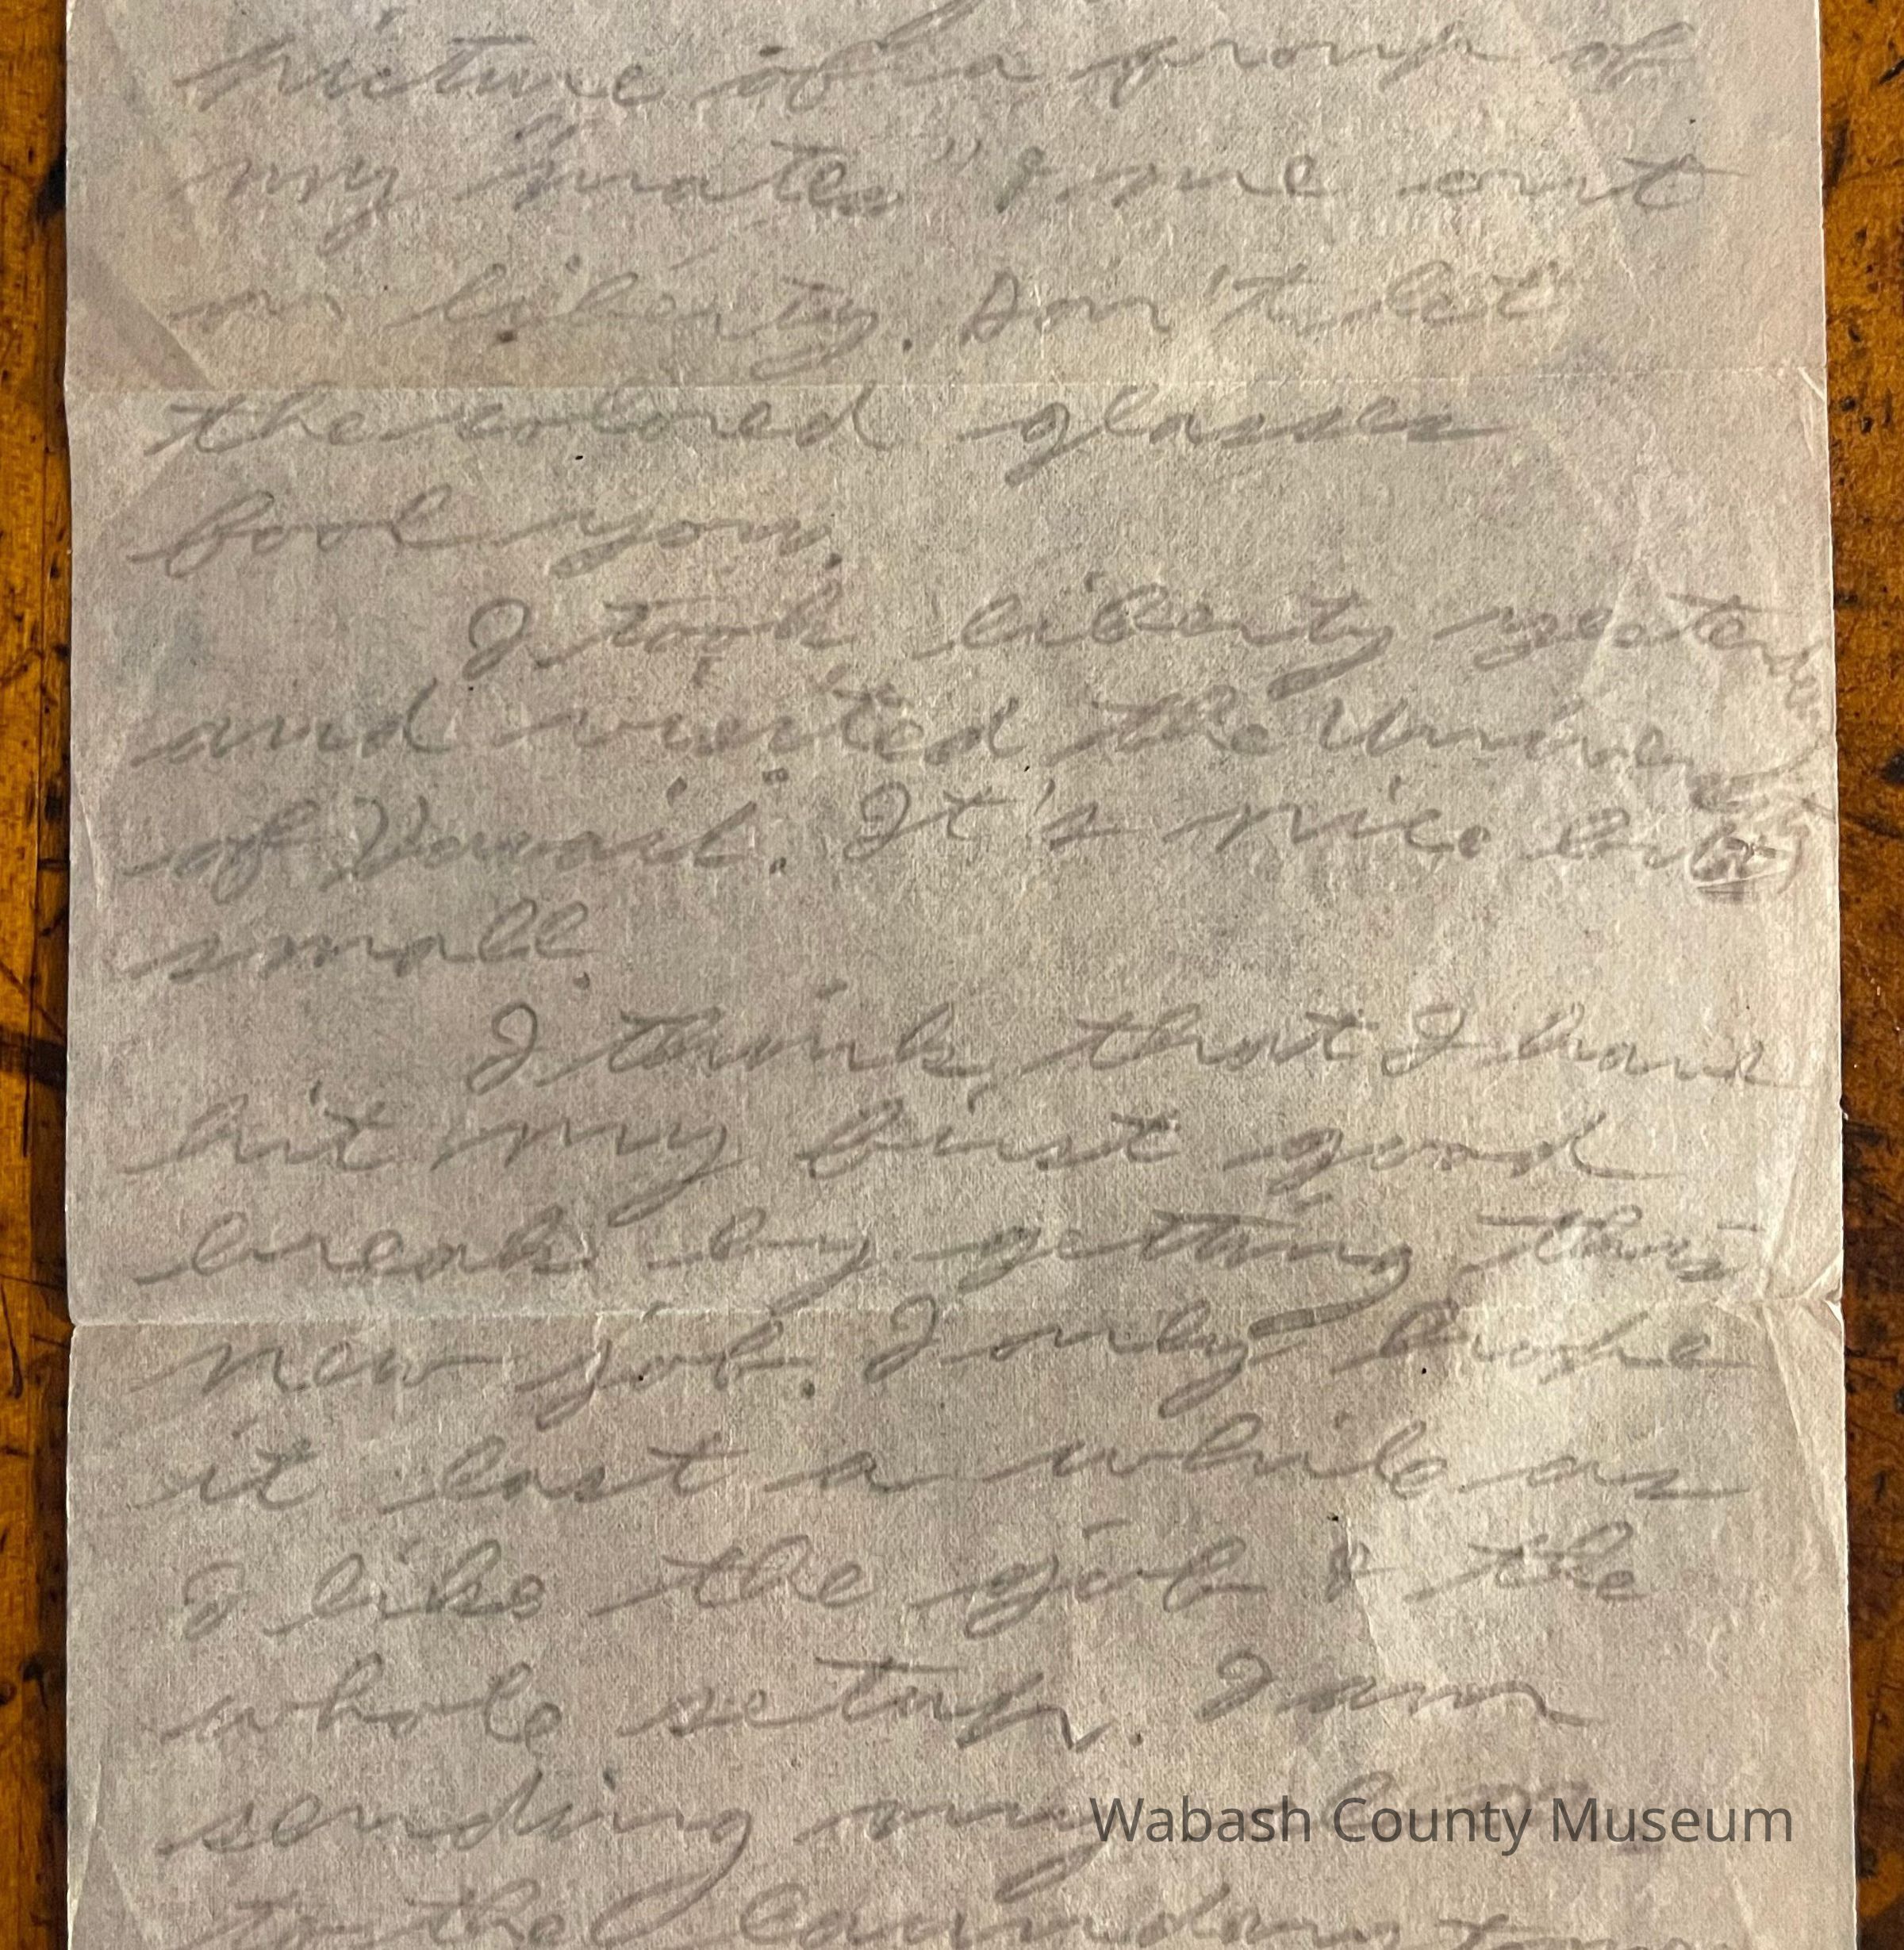 picture of a group of
my "mates" & me out
on liberty. Don't let
the colored glasses
fool you.
I took liberty yester
and visited the Univers
of Hawaii. It's nice but
small.
I think that I have
hit my first good
break by getting this
new job. I only hope
it last a while as
I like the job & the
whole setup. I am
sending my
to the laundry
Wabash County Museum